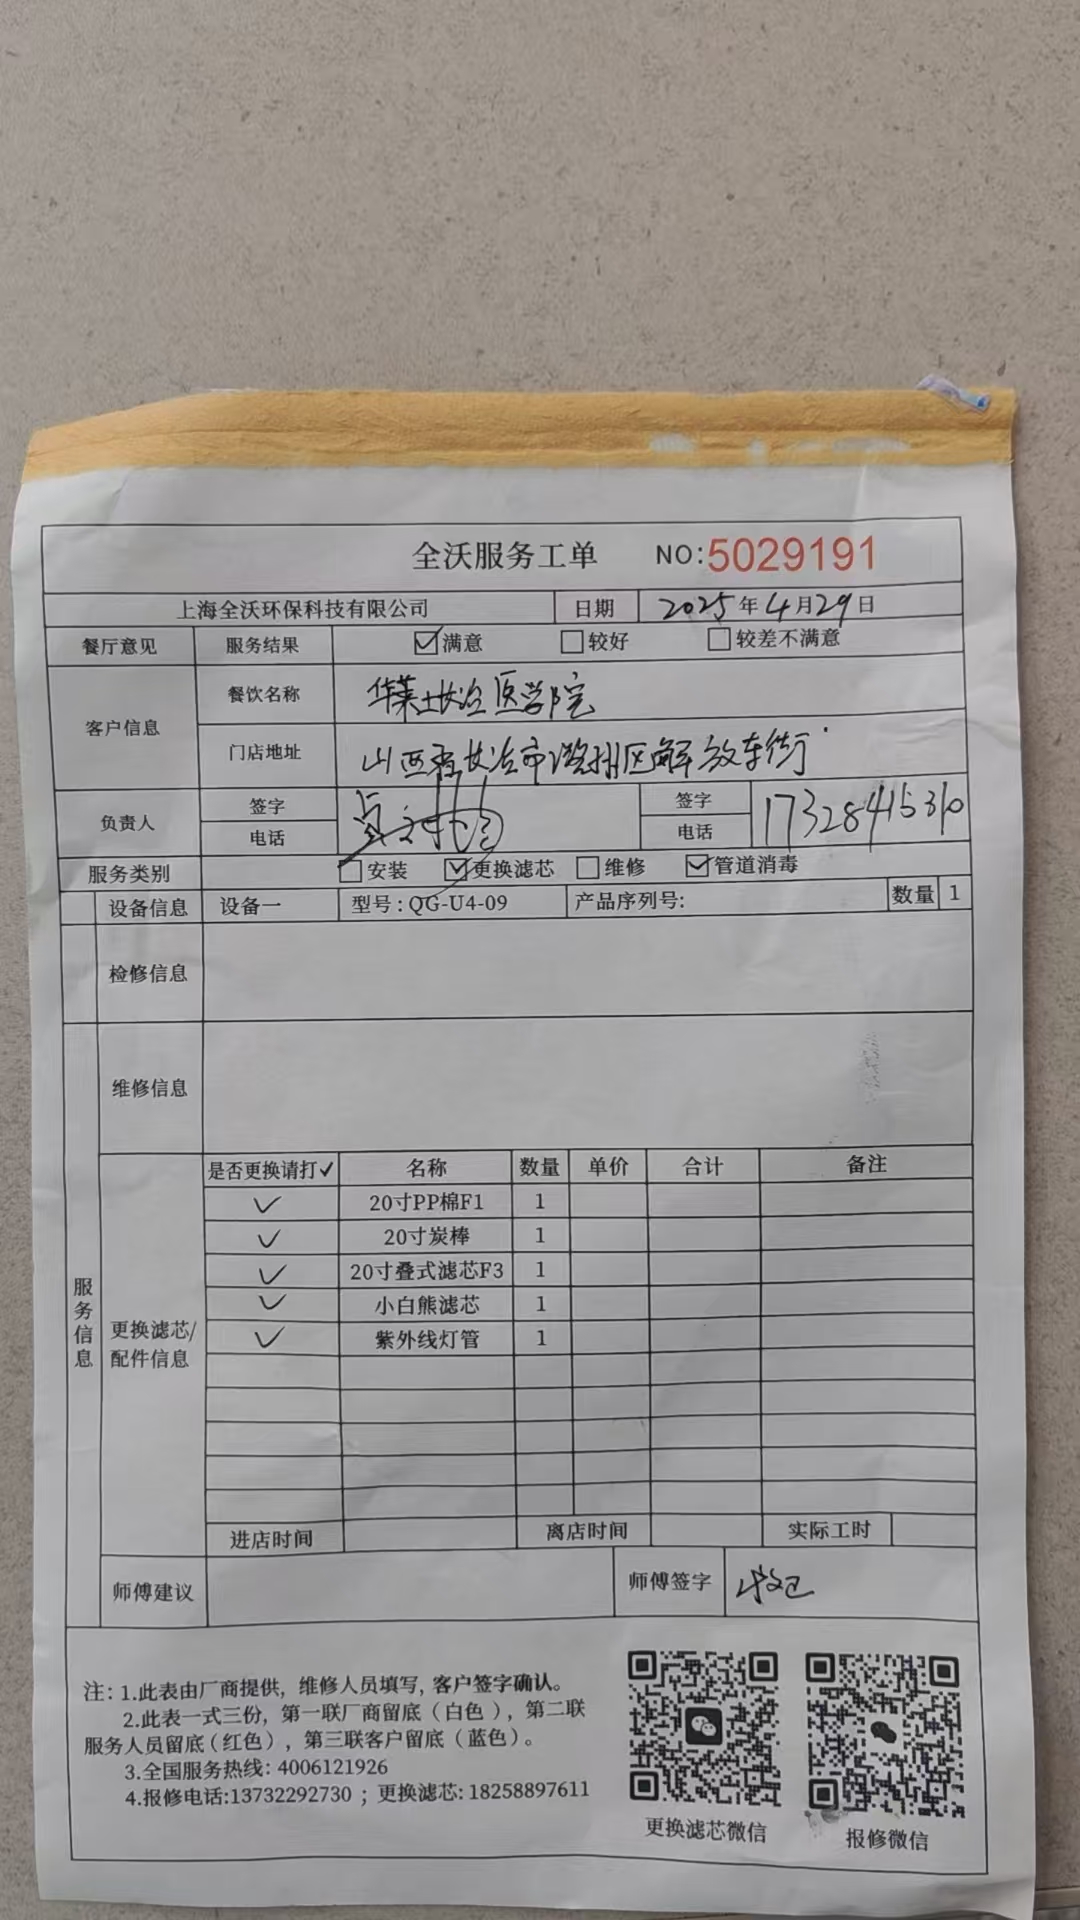 全沃服务工单 NO:5029191
上海全沃环保科技有限公司 日期 2025年4月29日
餐厅意见 服务结果 ☑满意 □较好 □较差不满意
客户信息 餐饮名称 华莱士长治医学院
门店地址 山西省长治市潞州区解放东街
负责人 签字 签字 17328415310
电话 电话
服务类别 □安装 ☑更换滤芯 □维修 ☑管道消毒
设备信息 设备一 型号:QG-U4-09 产品序列号: 数量 1
检修信息
维修信息
服务信息
更换滤芯/配件信息
是否更换请打✓ 名称 数量 单价 合计 备注
✓ 20寸PP棉F1 1
✓ 20寸炭棒 1
✓ 20寸叠式滤芯F3 1
✓ 小白熊滤芯 1
✓ 紫外线灯管 1
进店时间 离店时间 实际工时
师傅建议 师傅签字
注: 1.此表由厂商提供, 维修人员填写, 客户签字确认。
2.此表一式三份, 第一联厂商留底（白色）, 第二联
服务人员留底（红色）, 第三联客户留底（蓝色）。
3.全国服务热线: 4006121926
4.报修电话:13732292730 ; 更换滤芯: 18258897611
更换滤芯微信 报修微信